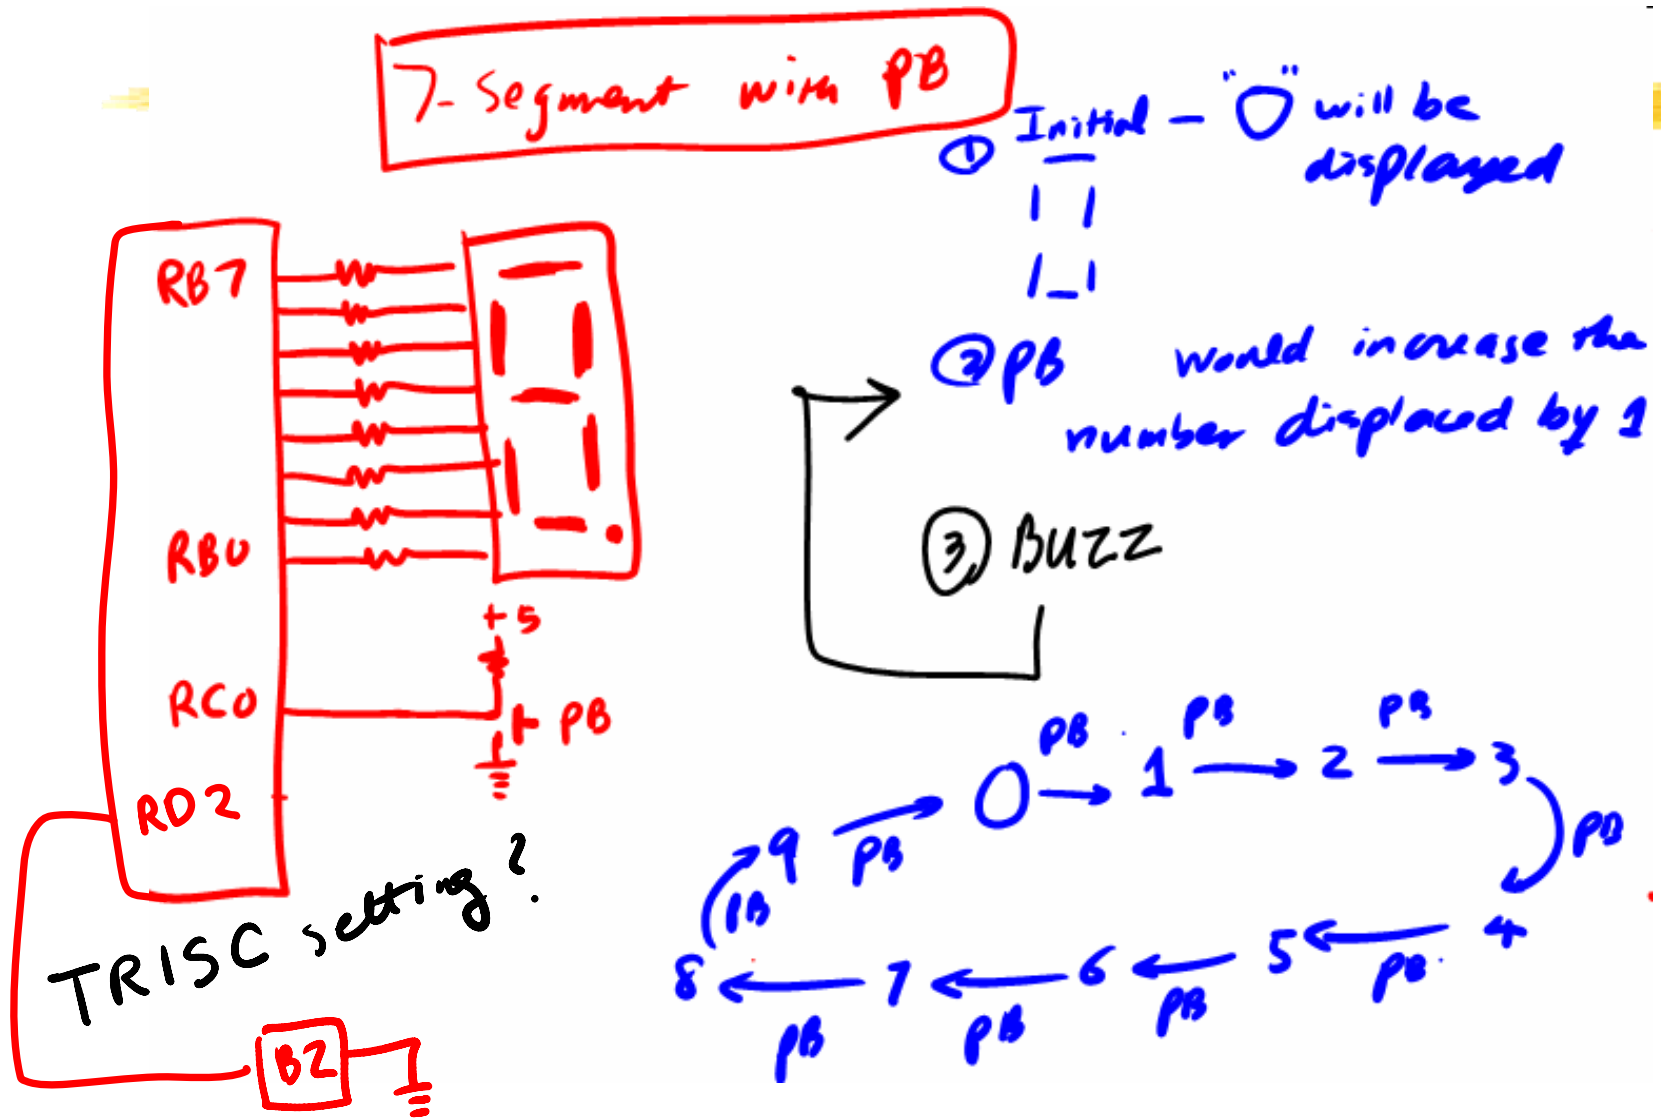 7- Segment with PB
① Initial - "0" will be
displayed
② PB would increase the
number displaced by 1
③ BUZZ
RB7
RB0
+5
RC0
PB
RD2
TRISC setting?
BZ
0 PB 1 PB 2 PB 3
PB
4 PB 5 PB 6 PB 7 PB 8
PB
9 PB